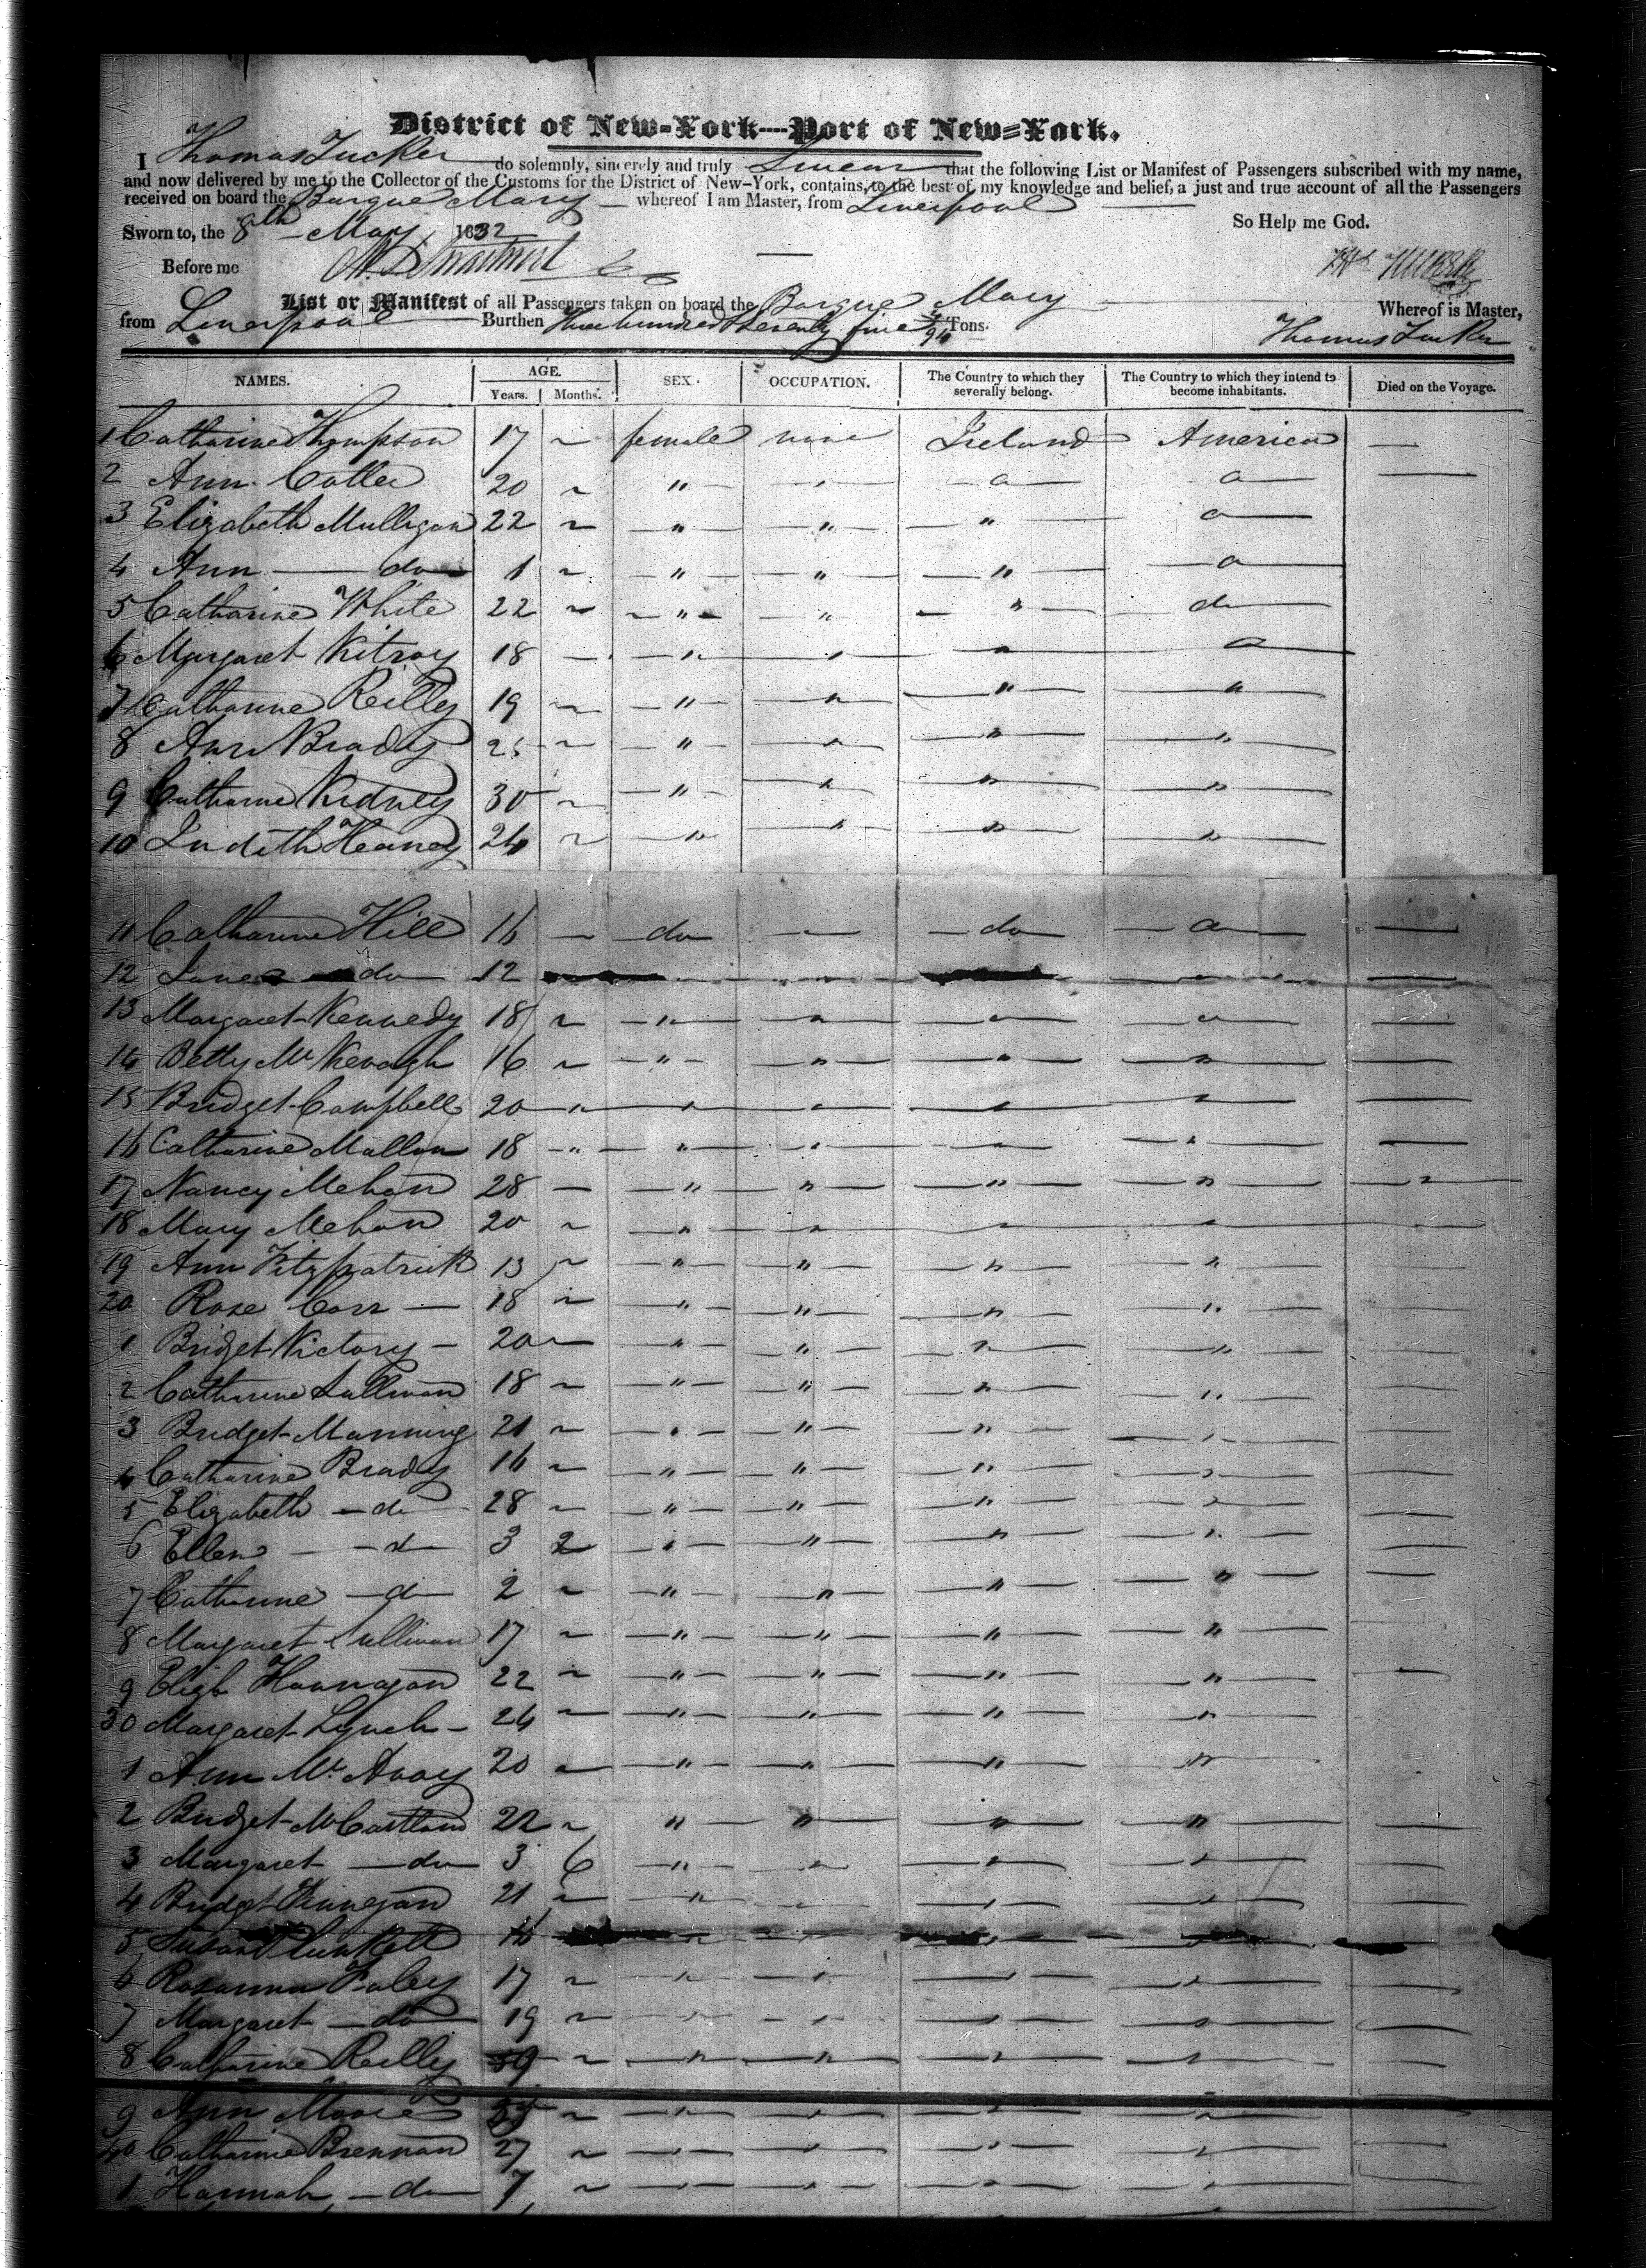 District of New-York----Port of New=York.
I Thomas Tucker do solemnly, sincerely and truly Swear that the following List or Manifest of Passengers subscribed with my name,
and now delivered by me to the Collector of the Customs for the District of New-York, contains, to the best of my knowledge and belief, a just and true account of all the Passengers
received on board the Barque Mary whereof I am Master, from Liverpool
So Help me God.
Sworn to, the 8th May 1832
Before me
List or Manifest of all Passengers taken on board the Barque Mary Whereof is Master,
from Liverpool Burthen Three hundred & Seventy five Tons. Thomas Tucker
NAMES. AGE. SEX. OCCUPATION. The Country to which they severally belong. The Country to which they intend to become inhabitants. Died on the Voyage.
Years. Months.
1 Catharine Thompson 17 ~ female none Ireland America —
2 Ann 20 ~ "
3 Elizabeth Mulligan 22 ~ " " "
4 Ann do 1 ~ " " "
5 Catharine White 22 ~ " " " do
6 Margaret 18 — "
7 Catharine Reilly 19 ~ " " " "
8 Ann Brady ~ " " " "
9 Catharine Kidney 30 ~ " " " "
10 Judith Heaney 24 ~ " " " "
11 Catharine Hill 16 ~ do do
12 Jane do 12
13 Margaret Kennedy 18 ~ "
14 Betty Mc 16 ~ " " " "
15 Bridget Campbell 20 " "
16 Catharine Mallon 18 " " "
17 Nancy Mehan 28 — " " " "
18 Mary Mehan 20 ~ " "
19 Ann Fitzpatrick 13 ~ " " " "
20 Rose Carr 18 ~ " " " "
1 Bridget Victory 20 ~ " " " "
2 Catharine Sullivan 18 ~ " " " "
3 Bridget Manning 21 ~ " " "
4 Catharine Brady 16 ~ " " " "
5 Elizabeth do 28 ~ " " " "
6 Ellen do 3 2 " " " "
7 Catharine do 2 ~ " " " "
8 Margaret Sullivan 17 ~ " " " "
9 Hannagan 22 ~ " " " "
30 Margaret Lynch 24 ~ " " " "
1 Ann Mc Avoy 20 ~ " " " "
2 Bridget McCartland 22 ~ " " " "
3 Margaret do 3 6 " " " "
4 Bridget Finnegan 21 ~ "
5 Susan Plunkett
6 Rosanna Foley 17 ~ "
7 Margaret do 19 ~
8 Catharine Reilly ~ " "
9 Ann Moore ~
40 Catharine Brennan 27 ~
1 Hannah do 7 ~